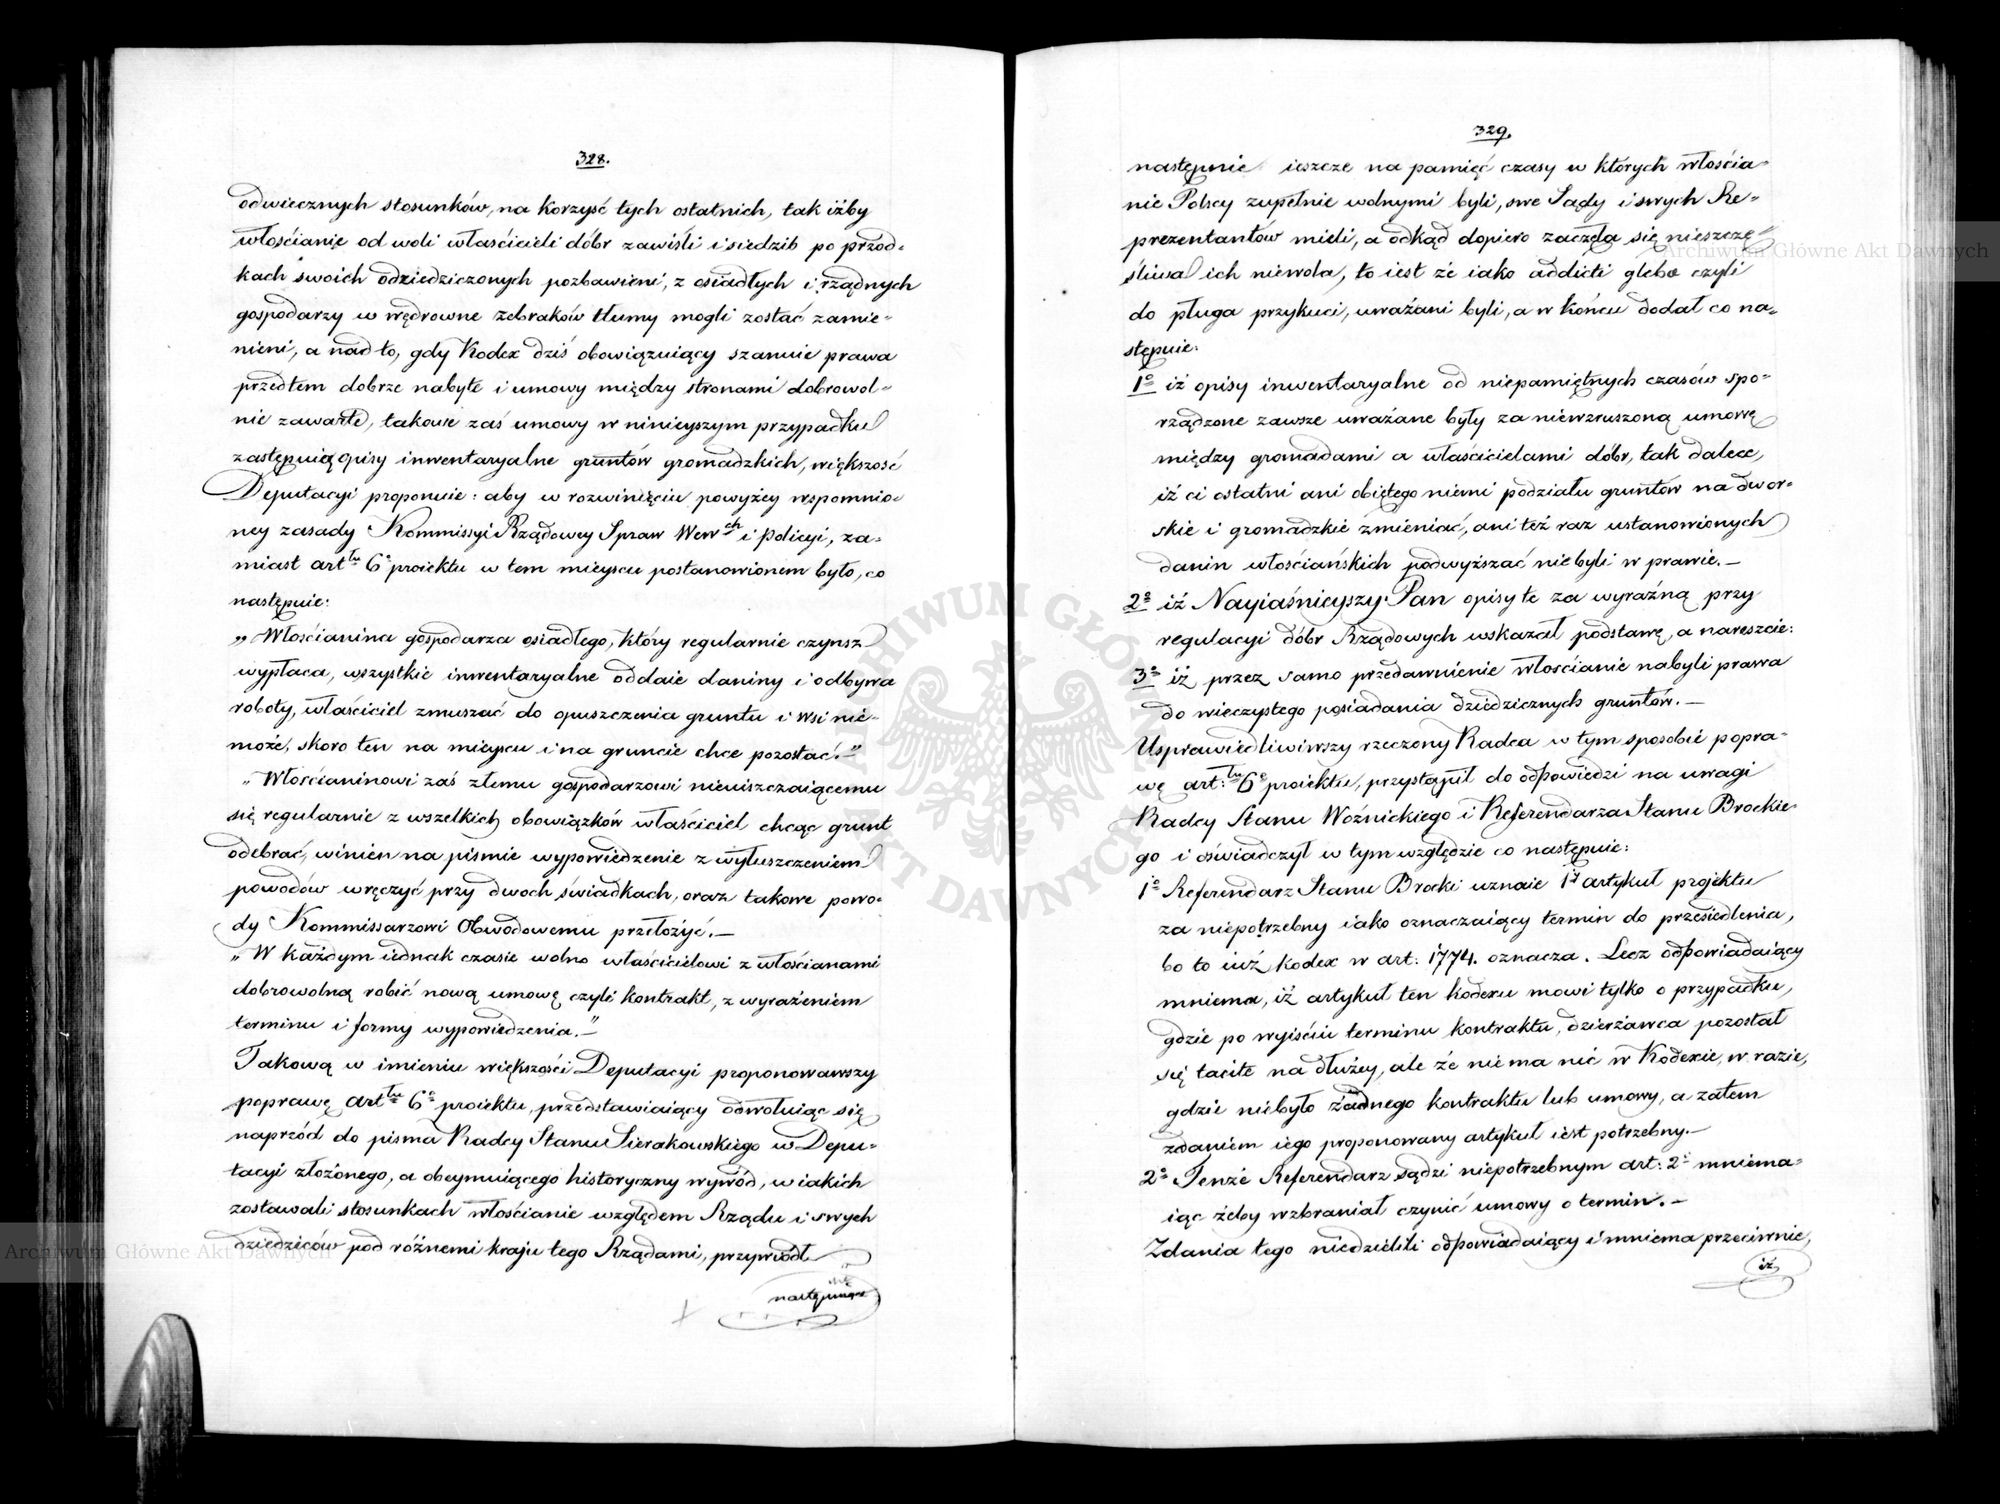 328.
odwiecznych stosunków, na korzyść tych ostatnich, tak iżby
włościanie od woli właścicieli dóbr zawiśli i siedzib po przod-
kach swoich odziedziczonych pozbawieni, z osiadłych i rządnych
gospodarzy w wędrowne żebraków tłumy mogli zostać zamie-
nieni, a nad to, gdy Kodex dziś obowiązuiący szanuie prawa
przedtem dobrze nabyte i umowy między stronami dobrowol-
nie zawarte, takowe zaś umowy w ninieyszym przypadku
zastępuią opisy inwentaryalne gruntów gromadzkich, większość
Deputacyi proponuie: aby w rozwinięciu powyżey wspomnio-
ney zasady Kommissyi Rządowey Spraw Wew ch i Policyi, za-
miast art tu 6º proiektu w tem mieyscu postanowionem było, co
następuie:
„Włościanina gospodarza osiadłego, który regularnie czynsz
wypłaca, wszystkie inwentaryalne oddaie daniny i odbywa
roboty, właściciel zmuszać do opuszczenia gruntu i wsi nie-
może, skoro ten na mieyscu i na gruncie chce pozostać.—"
„Włościaninowi zaś złemu gospodarzowi nieuiszczaiącemu
się regularnie z wszelkich obowiązków właściciel chcąc grunt
odebrać, winien na piśmie wypowiedzenie z wyłuszczeniem
powodów wręczyć przy dwoch świadkach, oraz takowe powo-
dy Kommissarzowi Obwodowemu przełożyć.—
„W każdym iednak czasie wolno właścicielowi z włościanami
dobrowolną robić nową umowę czyli kontrakt, z wyrażeniem
terminu i formy wypowiedzenia.—"
Takową w imieniu większości Deputacyi proponowawszy
poprawę art tu 6º proiektu, przedstawiaiący odwołuiąc się
naprzód do pisma Radcy Stanu Sierakowskiego w Depu-
tacyi złożonego, a obeymuiącego historyczny wywód, w iakich
zostawali stosunkach włościanie względem Rządu i swych
dziedziców pod różnemi kraiu tego Rządami, przywiódł
następnie
329.
następnie ieszcze na pamięć czasy w których włościa-
nie Polscy zupełnie wolnymi byli, swe Sądy i swych Re-
prezentantów mieli, a odkąd dopiero zaczęła się nieszczę-
śliwa ich niewola, to iest że iako addicti glebæ czyli
do pługa przykuci, uważani byli, a w końcu dodał co na-
stępuie:
1º iż opisy inwentaryalne od niepamiętnych czasów spo-
rządzone zawsze uważane były za niewzruszoną umowę
między gromadami a właścicielami dóbr, tak dalece,
iż ci ostatni ani obiętego niemi podziału gruntów na dwor-
skie i gromadzkie zmieniać, ani też raz ustanowionych
danin włościańskich podwyższać niebyli w prawie.—
2º iż Nayiaśnieyszy Pan opisy te za wyraźną przy
regulacyi dóbr Rządowych wskazał podstawę, a nareszcie:
3º iż przez samo przedawnienie włościanie nabyli prawa
do wieczystego posiadania dziedzicznych gruntów.—
Usprawiedliwiwszy rzeczony Radca w tym sposobie popra-
wę art: tu 6º proiektu, przystąpił do odpowiedzi na uwagi
Radcy Stanu Woźnickiego i Referendarza Stanu Brockie-
go i oświadczył w tym względzie co następuie:
1º Referendarz Stanu Brocki uznaie 1 y artykuł projektu
za niepotrzebny iako oznaczaiący termin do przesiedlenia,
bo to iuż kodex w art: 1774. oznacza. Lecz odpowiadaiący
mniema, iż artykuł ten kodexu mowi tylko o przypadku,
gdzie po wyiściu terminu kontraktu, dzierżawca pozostał
się tacite na dłużey, ale że niema nic w Kodexie, w razie,
gdzie niebyło żadnego kontraktu lub umowy, a zatem
zdaniem iego proponowany artykuł iest potrzebny.—
2º Tenże Referendarz sądzi niepotrzebnym art: 2º mniema-
iąc żeby wzbraniał czynić umowy o termin.—
Zdania tego niedzielili odpowiadaiący i mniema przeciwnie,
iż
ARCHIWUM GŁÓWNE AKT DAWNYCH
Archiwum Główne Akt Dawnych
Archiwum Główne Akt Dawnych